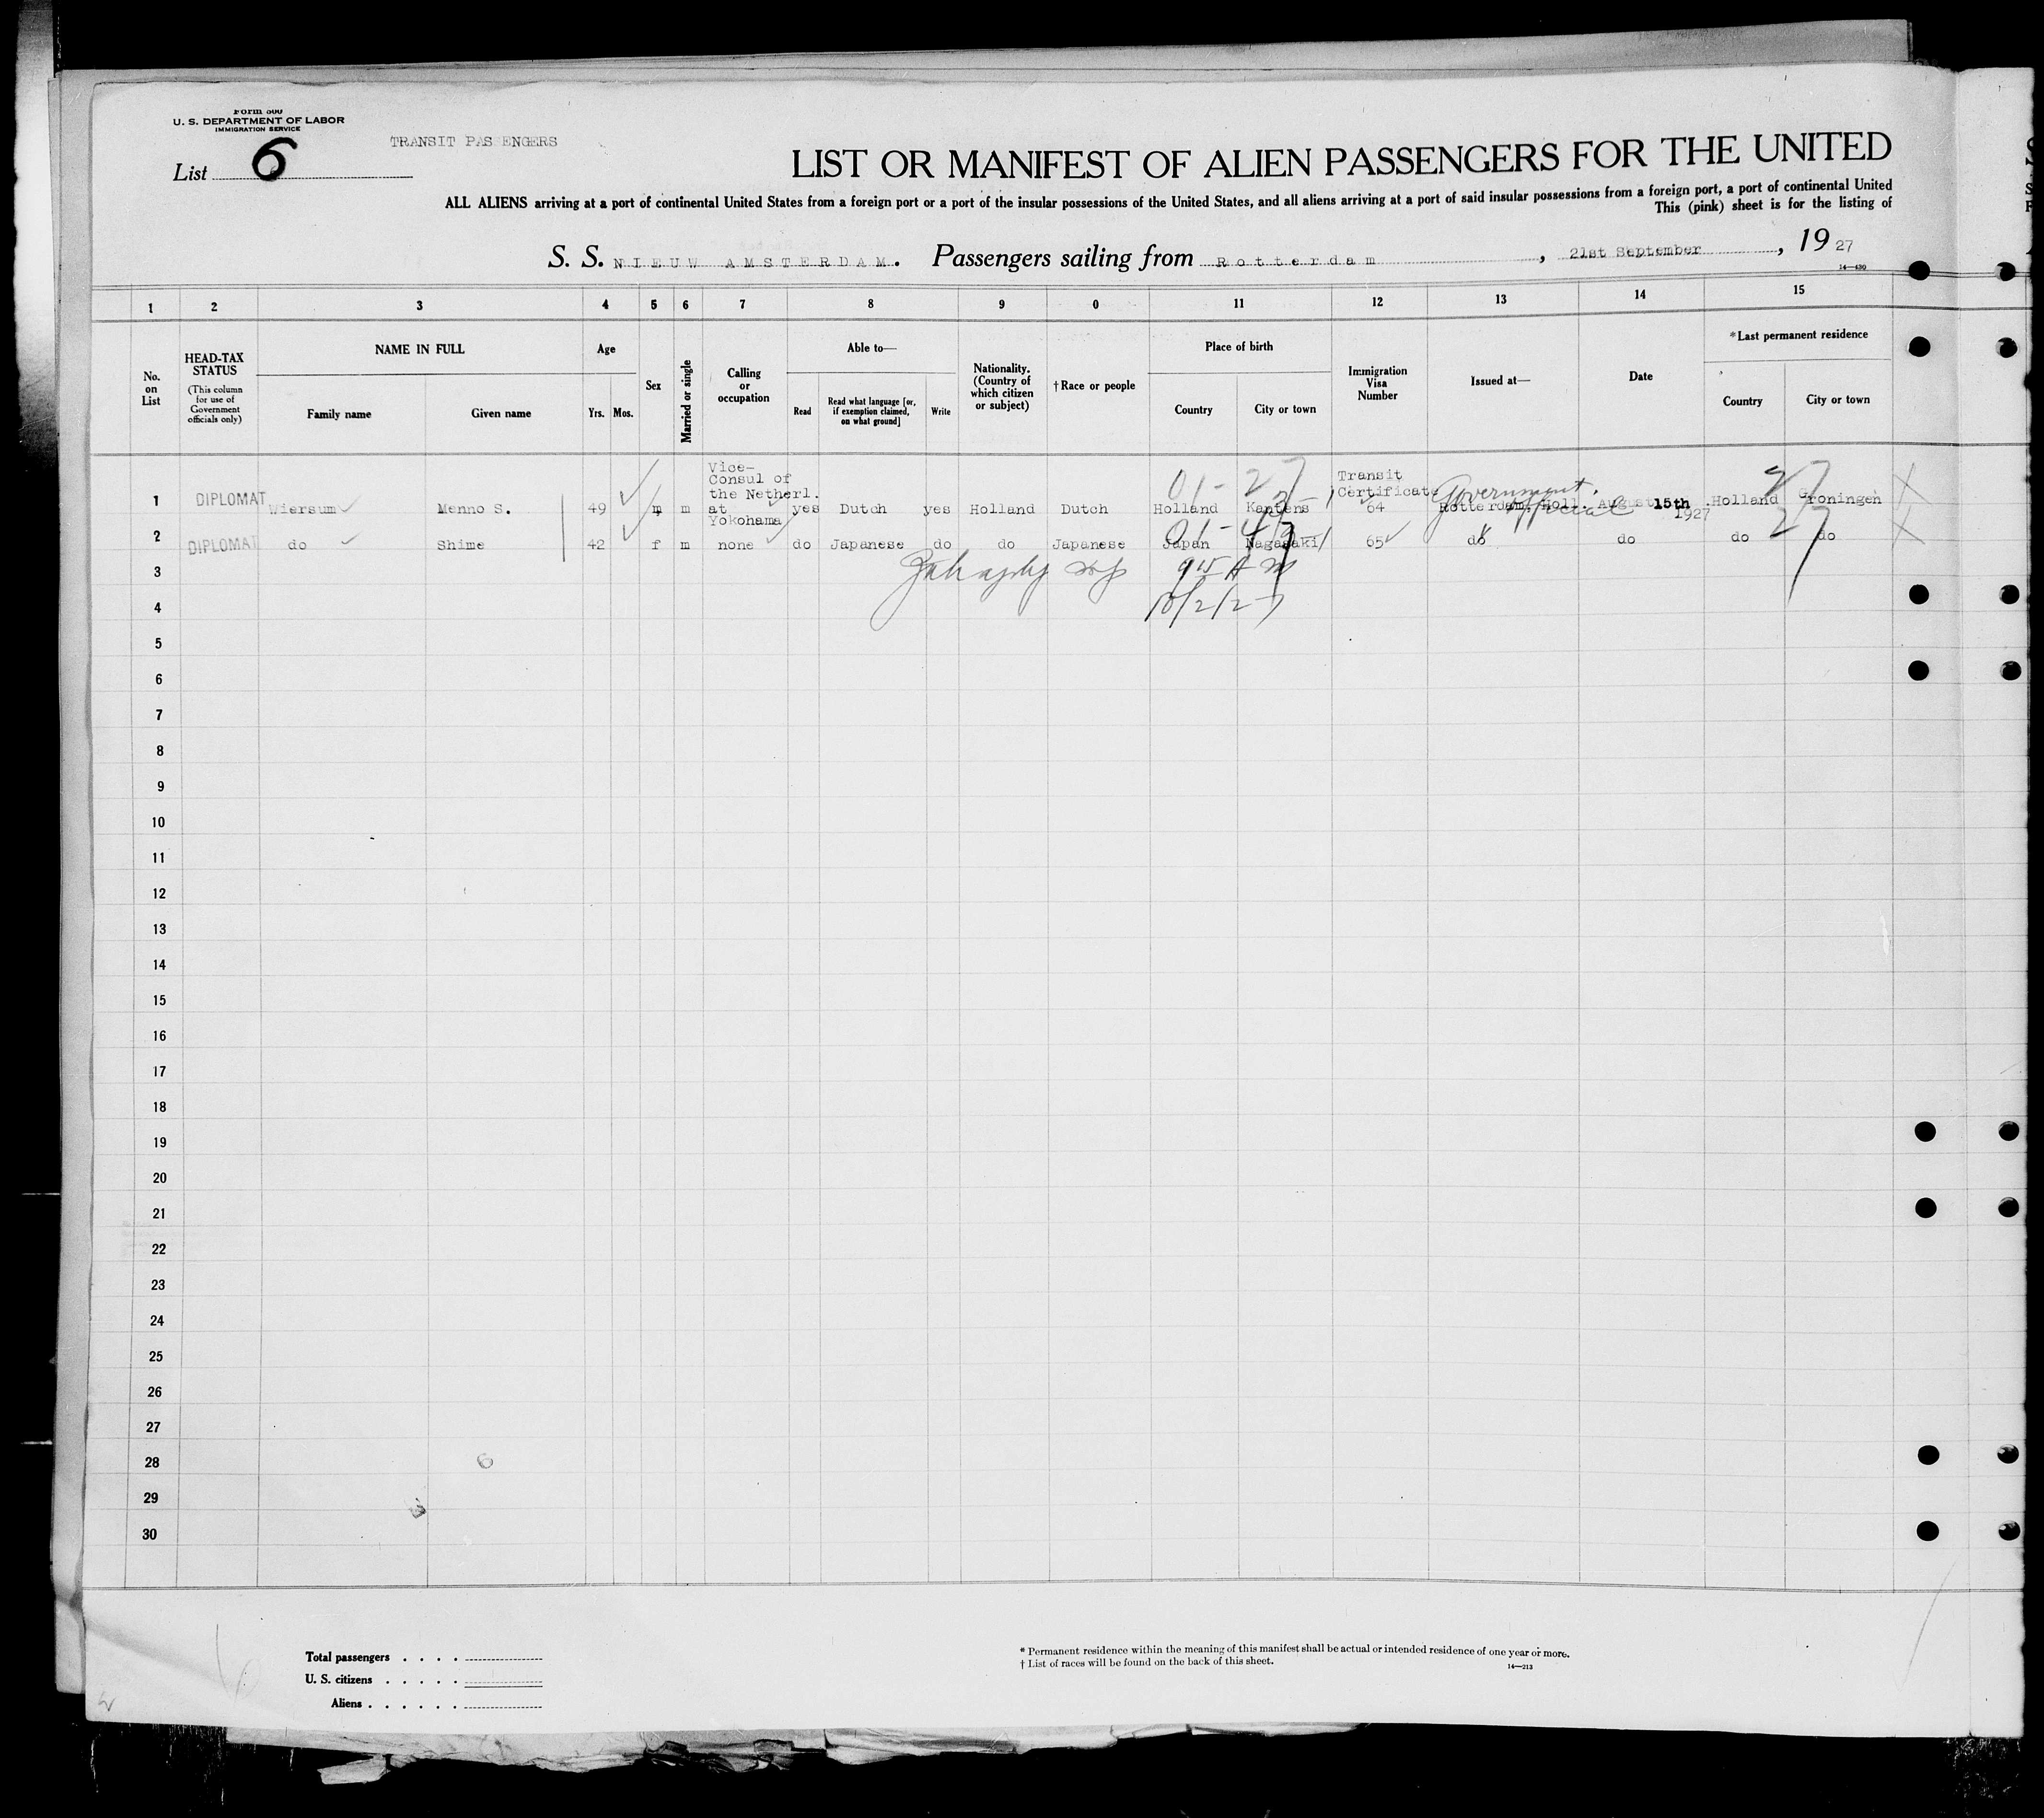 Form 500
U. S. DEPARTMENT OF LABOR
IMMIGRATION SERVICE
TRANSIT PAS ENGERS
List 6
LIST OR MANIFEST OF ALIEN PASSENGERS FOR THE UNITED
ALL ALIENS arriving at a port of continental United States from a foreign port or a port of the insular possessions of the United States, and all aliens arriving at a port of said insular possessions from a foreign port, a port of continental United
This (pink) sheet is for the listing of
S. S. NIEUW AMSTERDAM. Passengers sailing from Rotterdam, 21st September, 19 27
14—430
1 2 3 4 5 6 7 8 9 0 11 12 13 14 15
No. on List
HEAD-TAX STATUS (This column for use of Government officials only)
NAME IN FULL
Family name Given name
Age
Yrs. Mos.
Sex
Married or single
Calling or occupation
Able to—
Read
Read what language [or, if exemption claimed, on what ground]
Write
Nationality. (Country of which citizen or subject)
†Race or people
Place of birth
Country City or town
Immigration Visa Number
Issued at—
Date
*Last permanent residence
Country City or town
1 DIPLOMAT Wiersum Menno S. 49 m m Vice-Consul of the Netherl. at Yokohama yes Dutch yes Holland Dutch Holland Kantens Transit Certificate 64 Rotterdam, Holl. August 15th 1927 Holland Groningen
Government Official
01-27
27
2 DIPLOMAT do Shime 42 f m none do Japanese do do Japanese Japan Nagasaki 65 do do do do
27
3
915 A M
4
10/2/27
5
6
7
8
9
10
11
12
13
14
15
16
17
18
19
20
21
22
23
24
25
26
27
28
29
30
6
Total passengers . . . .
U. S. citizens . . . . .
Aliens . . . . . .
* Permanent residence within the meaning of this manifest shall be actual or intended residence of one year or more.
† List of races will be found on the back of this sheet.
14—213